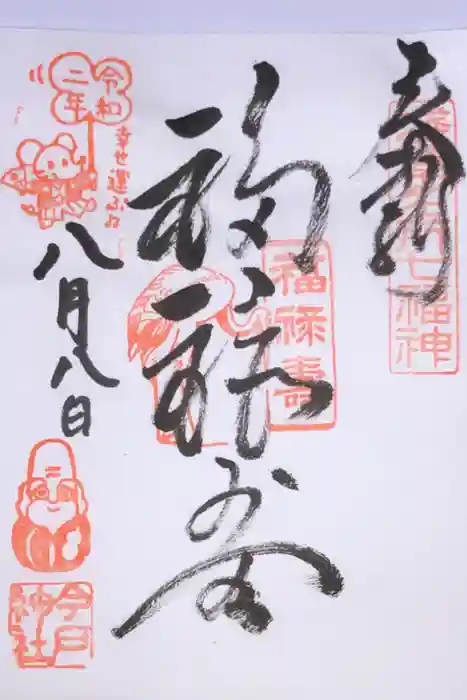 奉拝
七福神
福禄寿
福禄壽
令和
二年
幸せ運ぶ♫
八月八日
今戸
神社